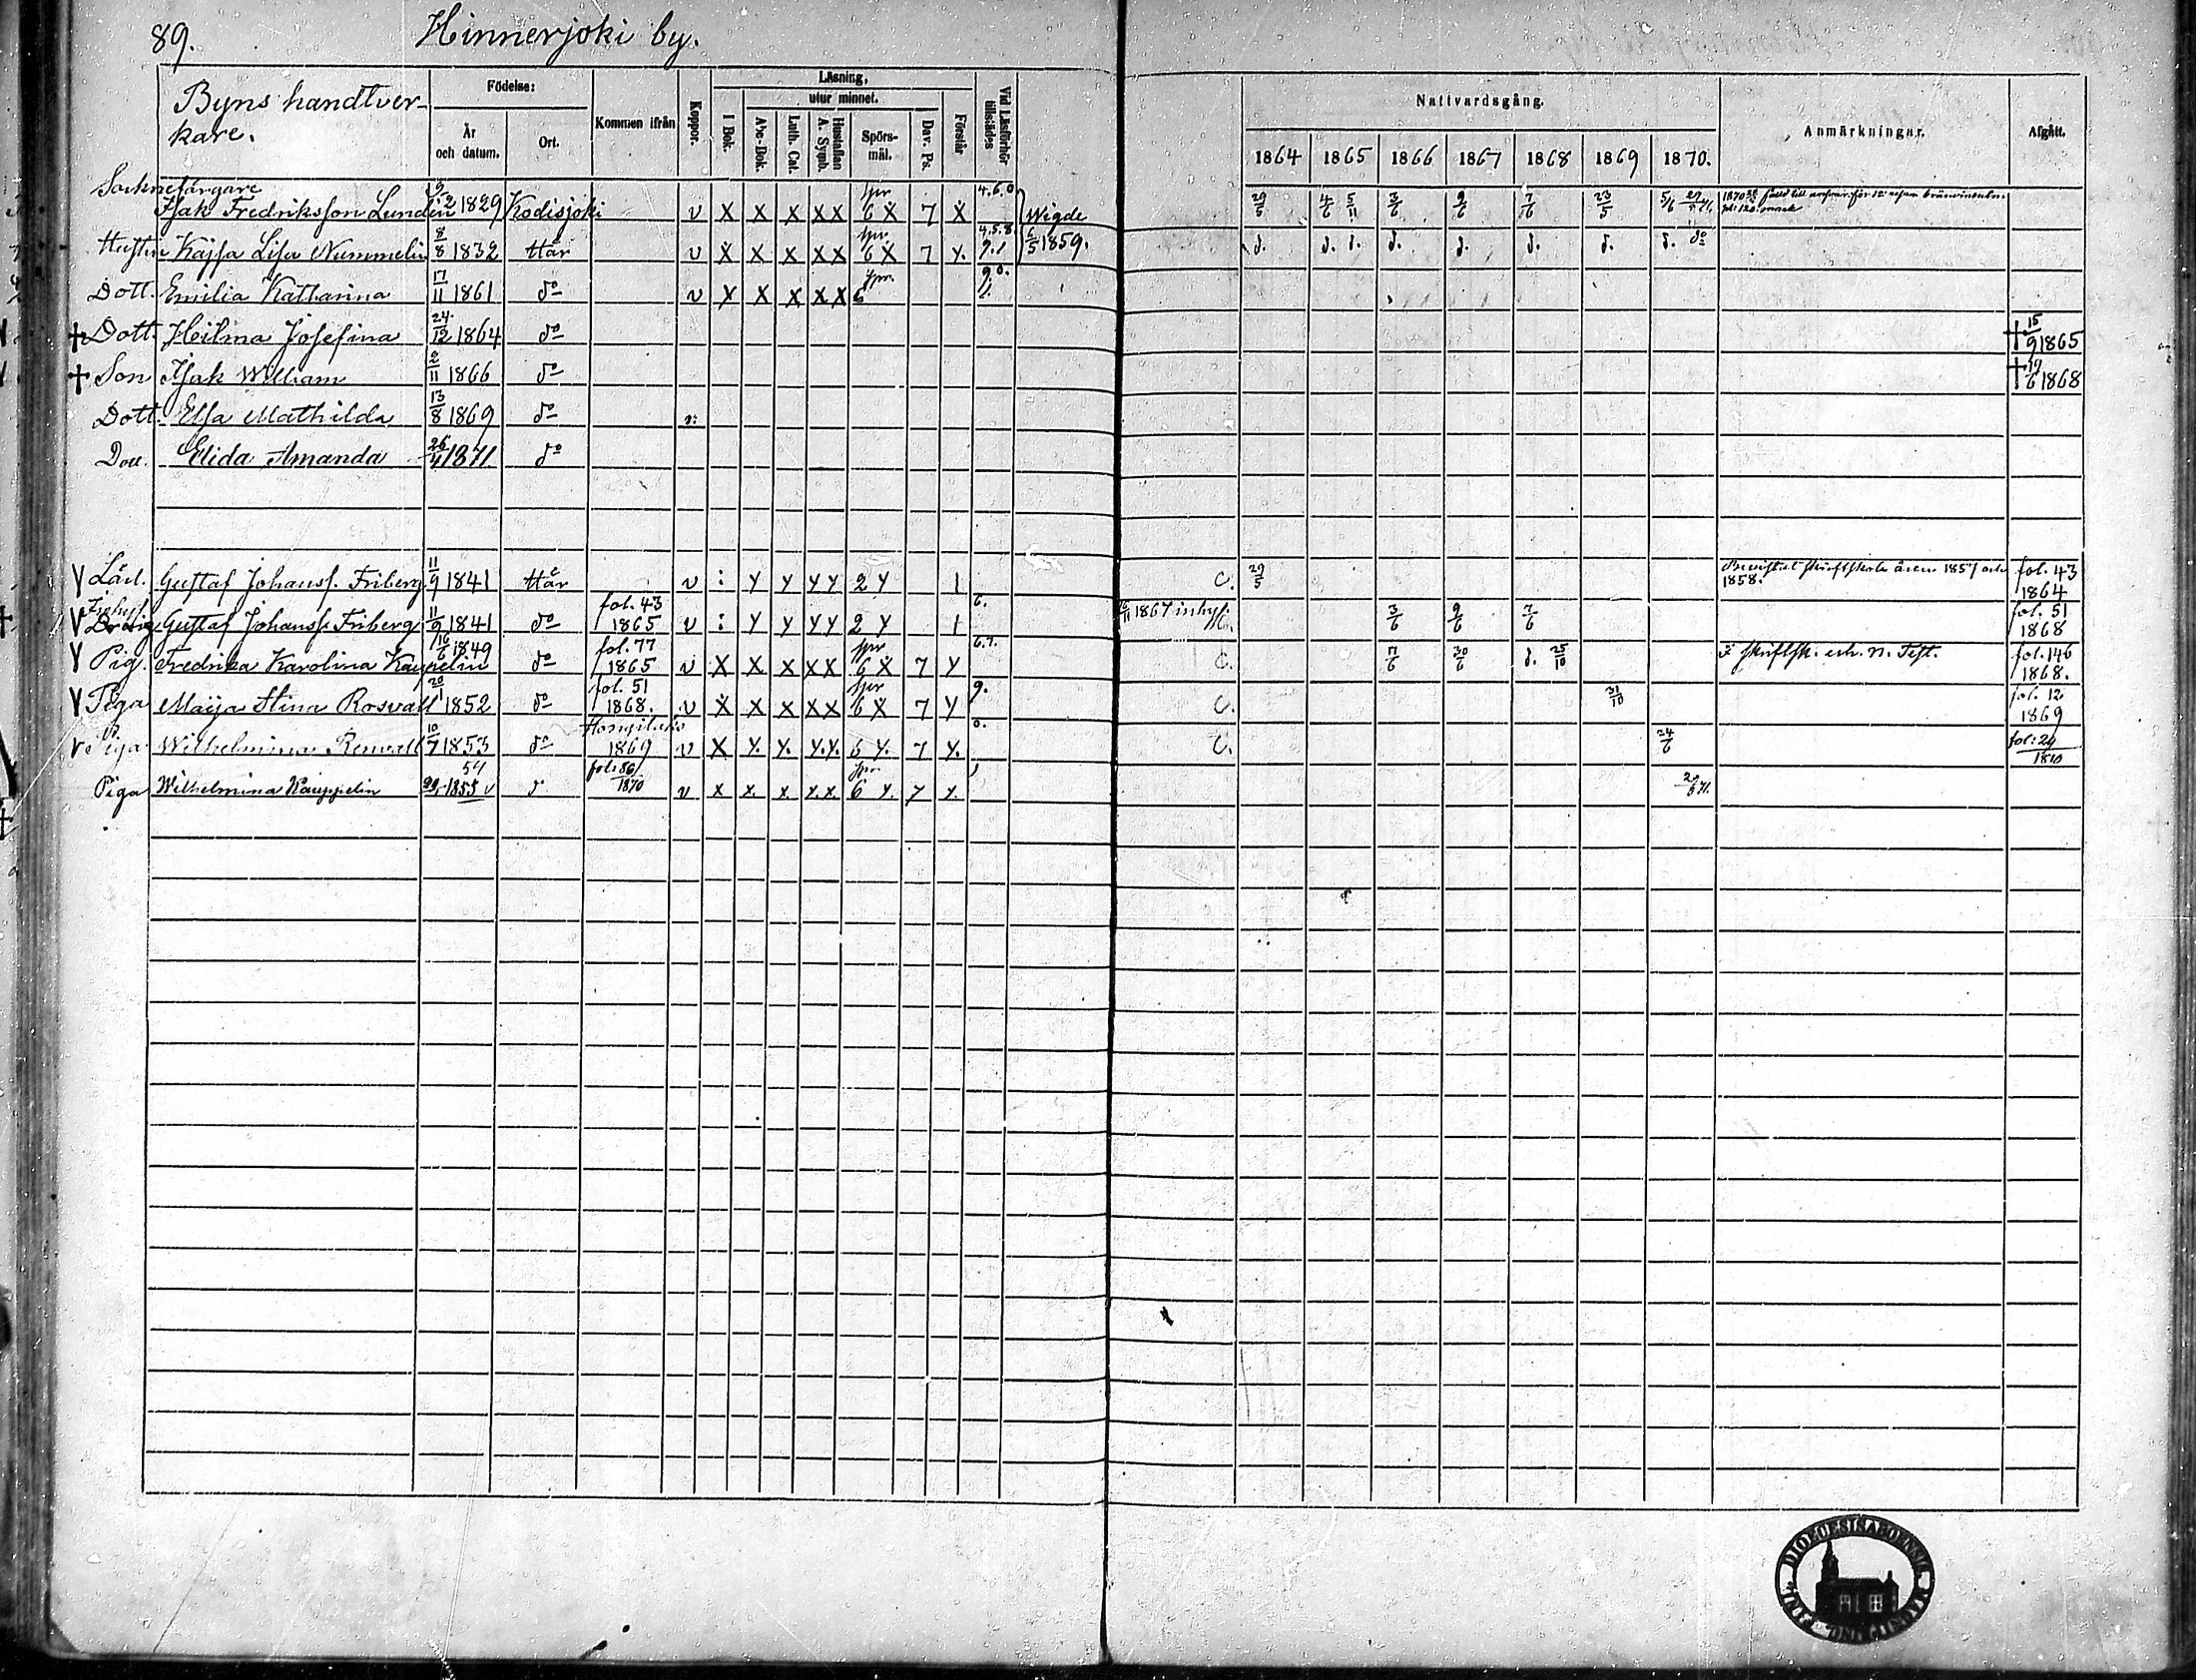 89.
Hinnerjoki by.
Byns handtver-
kare.
Födelse:
År
och datum.
Ort.
Kommen ifrån
Koppor.
Läsning,
utur minnet.
I Bok.
Abc-Bok.
Luth. Cat.
Hustaflan
A. Symb.
Spörs-
mål.
Dav. Ps.
Förstår
Vid Läsförhör
tillstädes
Nattvardsgång.
1864 1865 1866 1867 1868 1869 1870.
Anmärkningar.
Afgått.
Socknefärgare
Isak Fredriksson Lundin 9/2 1829 Kodisjoki v X X X XX spr 6 X 7 X 4.6.0 Wigde 29/5 4/6 5/11 3/6 9/6 7/6 23/5 5/6
Hustru Kajsa Lisa Nummelin 8/8 1832 Här v X X X XX spr. 6 X 7 Y. 4.5.8. 9.1 6/5 1859. d. d. d. d. d. d. d. d. do
Dott. Emilia Katharina 17/11 1861 do v X X X XX spr. 6 9.0.
† Dott. Heilma Josefina 24/12 1864 do † 15/9 1865
† Son Isak William 2/11 1866 do † 19/6 1868
Dott. Elsa Mathilda 13/8 1869 do v:
Dott. Elida Amanda 26/4 1871 do
Lärl. Gustaf Johanss. Friberg 11/9 1841 Här v : Y Y YY 2 Y 1 C. 29/5 skriftskola åren 1857 och 1858. fol. 43 1864
Dräng Gustaf Johanss. Friberg 11/9 1841 do fol. 43 1865 v : Y Y YY 2 Y 1 6. 1867 inhys. 3/6 9/6 7/6 fol. 51 1868
Pig. Fredrika Karolina Kauppelin 16/6 1849 do fol. 77 1865 v X X X XX spr 6 X 7 Y 6.7. C. 7/6 30/6 d. 25/10 skriftsk. och N. Test. fol. 146 1868.
Piga Maija Stina Rosvall 20/1 1852 do fol. 51 1868. v X X X XX spr 6 X 7 Y 9. C. 31/10 fol. 12 1869
Piga Wilhelmina Renvall 10/7 1853 do Hongilaks 1869 v X Y. Y. Y.Y. 6 Y. 7 Y. 0. C. 24/6 fol: 24 1870
Piga Wilhelmina Kauppelin 1855 54 d fol: 86 1870 v X X. X X.X. spr 6 Y. 7 Y. 20/6 71.
DIOECESIS ABOENSIS MAGNI DUC. FINL.